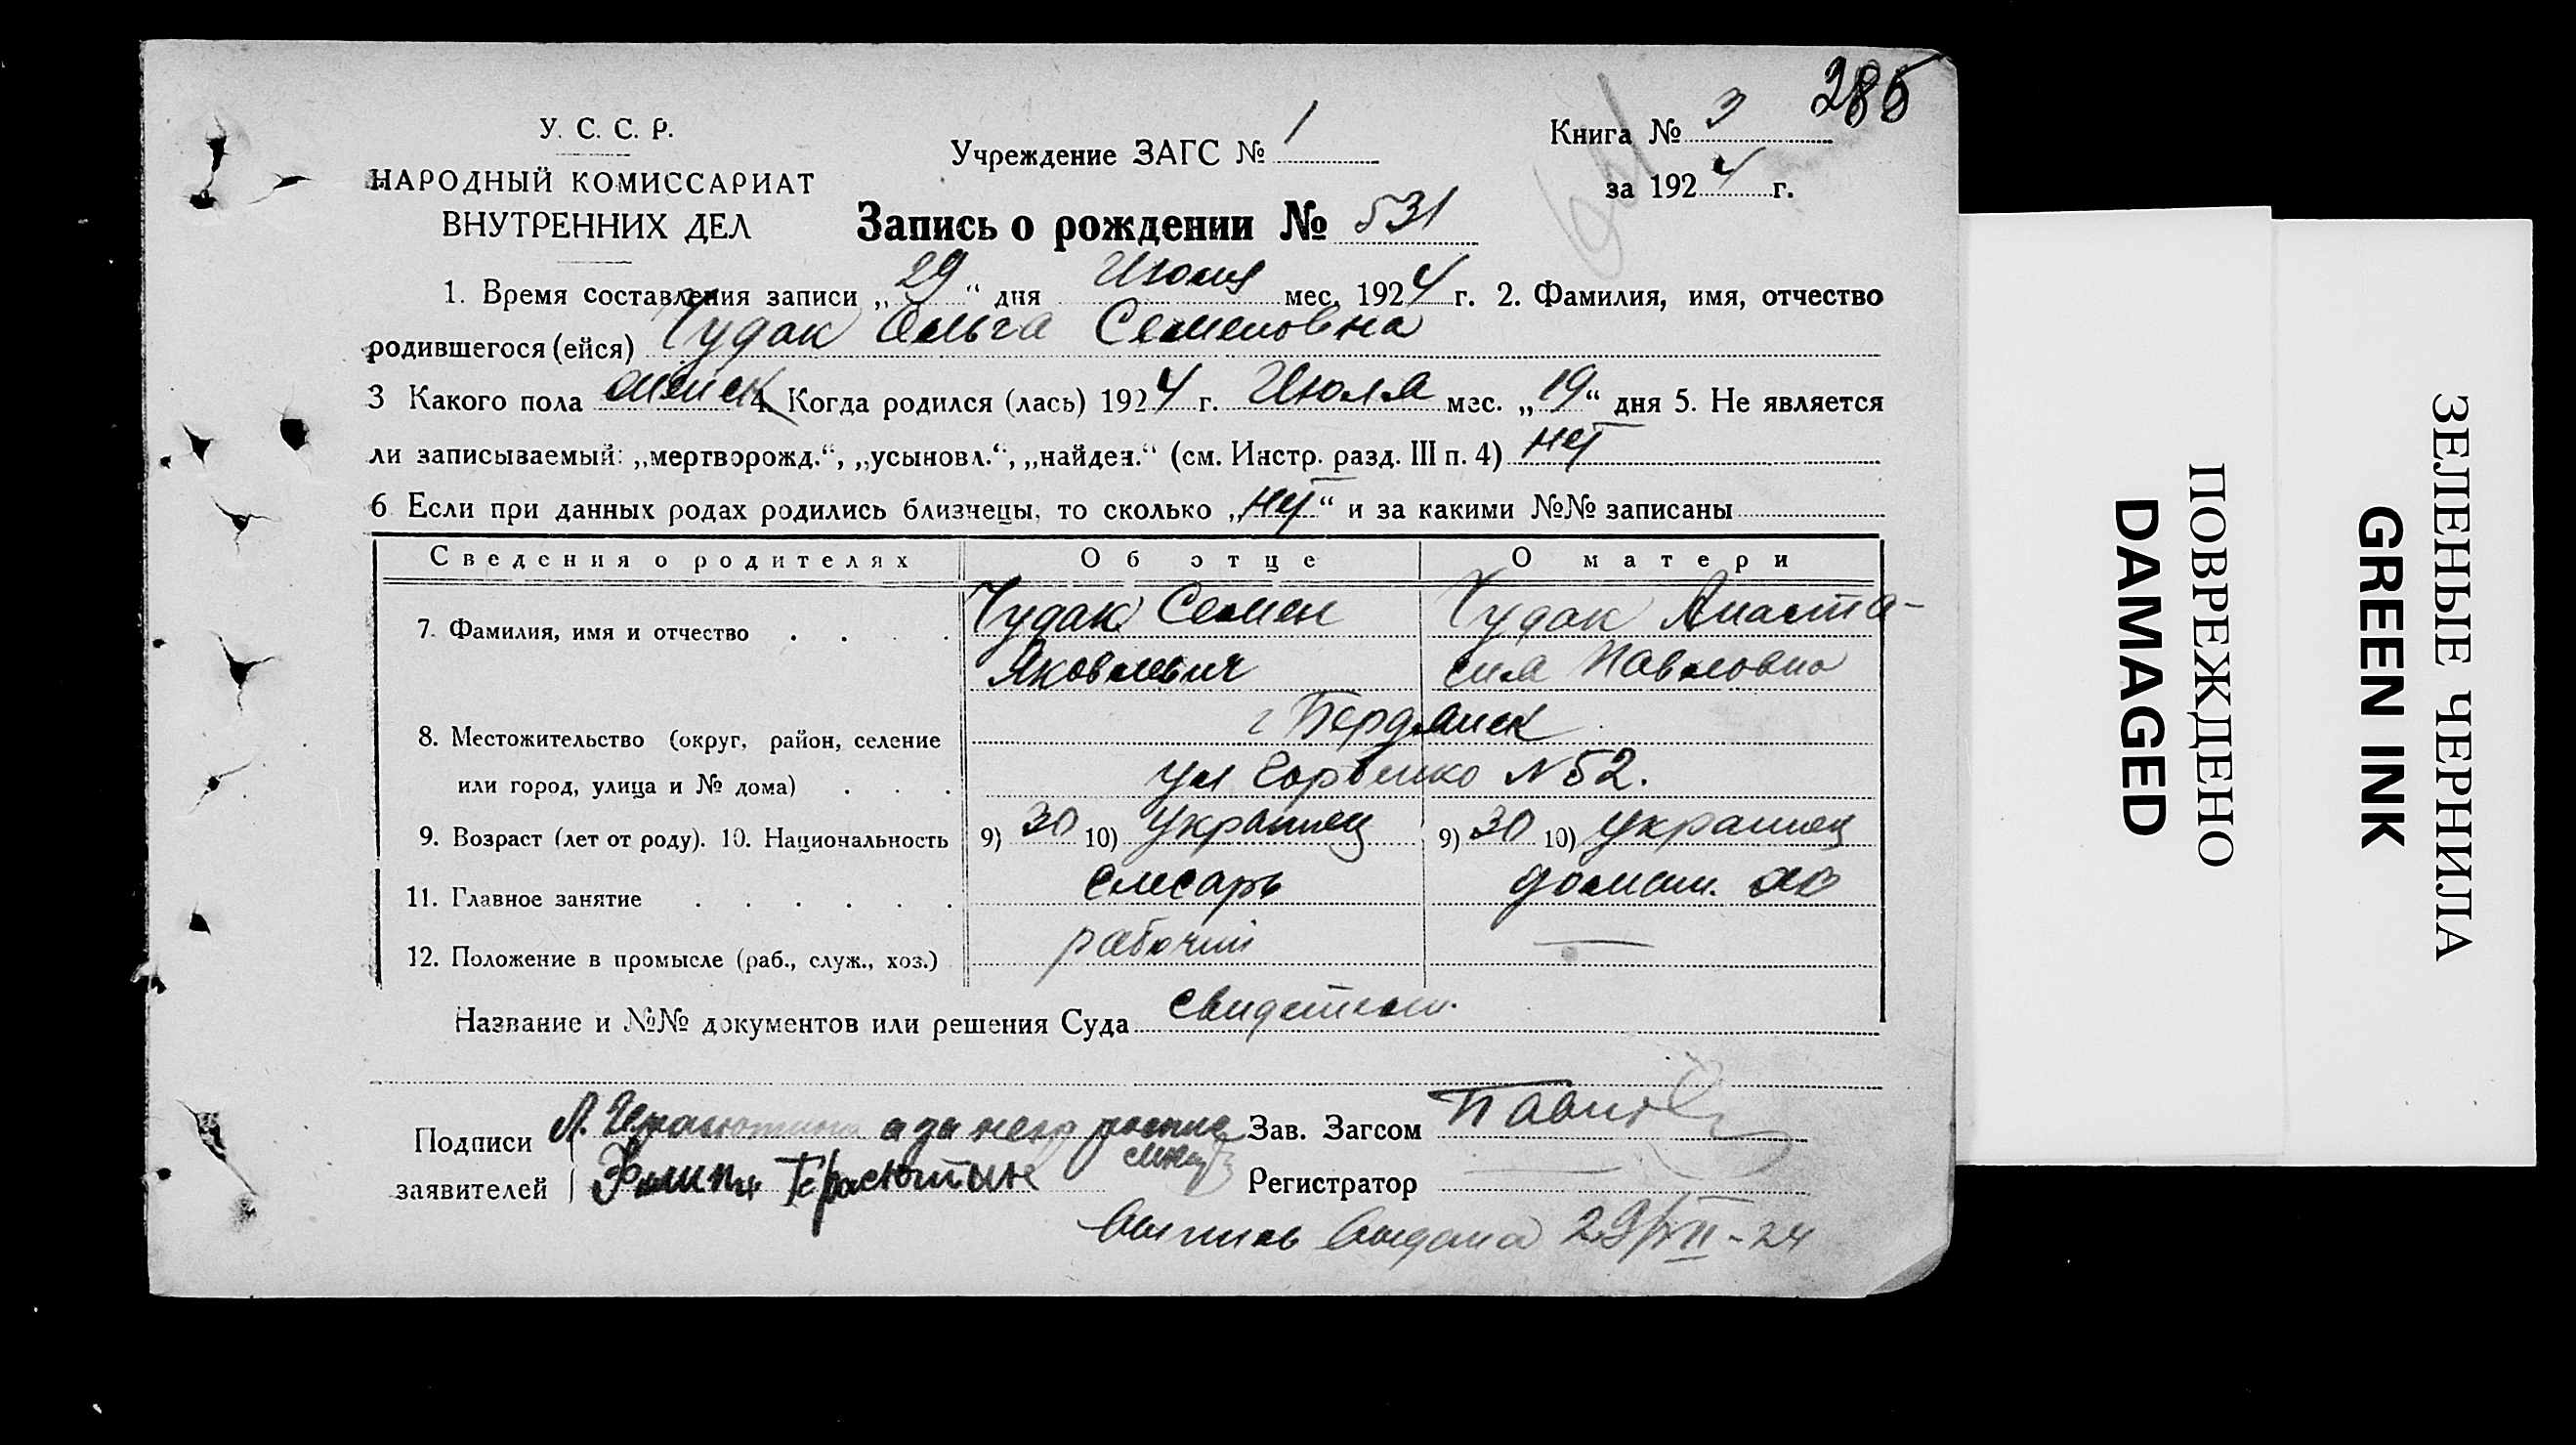 285
У. С. С. Р.
НАРОДНЫЙ КОМИССАРИАТ
ВНУТРЕННИХ ДЕЛ
Учреждение ЗАГС № 1
Книга № 3
за 1924 г.
Запись о рождении № 531
1. Время составления записи „29“ дня Июля мес. 1924 г. 2. Фамилия, имя, отчество
родившегося (ейся) Чудак Ольга Семеновна
3 Какого пола женск 4. Когда родился (лась) 1924 г. Июля мес. „19“ дня 5. Не является
ли записываемый: „мертворожд.“, „усыновл.“, „найден.“ (см. Инстр. разд. III п. 4) нет
6 Если при данных родах родились близнецы, то сколько „нет“ и за какими №№ записаны
Сведения о родителях Об отце О матери
7. Фамилия, имя и отчество Чудак Семен Чудак Анаста-
Яковлевич сия Павловна
8. Местожительство (округ, район, селение г Бердянск
или город, улица и № дома) ул №52.
9. Возраст (лет от роду). 10. Национальность 9) 30 10) украинец 9) 30 10) украинец
11. Главное занятие слесарь домаш. хоз
12. Положение в промысле (раб., служ., хоз.) рабочий —
Название и №№ документов или решения Суда свидетел.
Подписи а за негр Зав. Загсом
заявителей Регистратор
Выпись выдана 29/VII-24
ПОВРЕЖДЕНО
DAMAGED
ЗЕЛЕНЫЕ ЧЕРНИЛА
GREEN INK